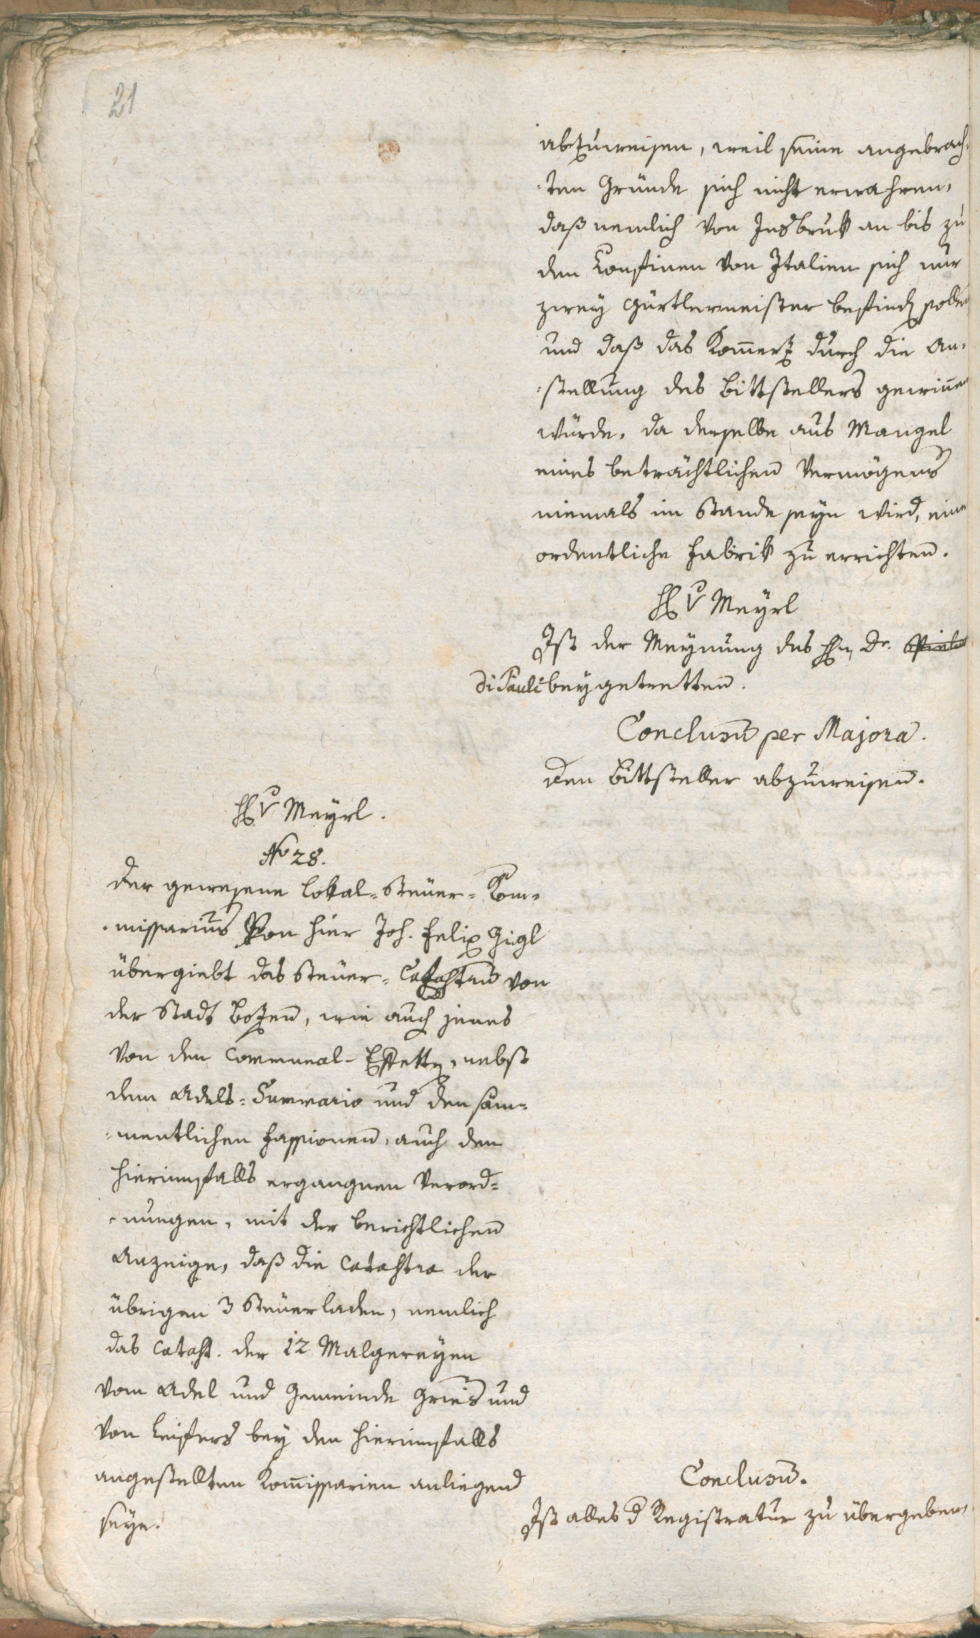 21
abzuweisen, weil seine angebrach-
-ten Gründe sich nicht erwahren,
daß nemlich von Insbruk an bis zu
den Confinen von Italien sich nur
zwey Gürtlermeister befinden sollen
und daß das Kom̄erz durch die An-
-stellung des Bittstellers gewin̄en
würde, da derselbe aus Mangel
eines beträchtlichen Vermögens
niemals im Stande seyn wird, eine
ordentliche Fabrik zu errichten.
H v Meyrl
Ist der Meynung des H Dr.
di Pauli beygetretten.
Conclusum̄ per Majora.
Den Bittsteller abzuweisen.
H v Meyrl.
No 28.
Der gewesene Lokal-Steuer-Kom-
-missarius von hier Joh. Felix Gigl
übergiebt das Steuer-Catastrum von
der Stadt Bozen, wie auch jenes
von den Communal-Effetten, nebst
dem Adels-Summario und den säm-
-mentlichen Fassionen, auch den
hierinfalls ergangnen Verord-
-nungen, mit der berichtlichen
Anzeige, daß die Catastra der
übrigen 3 Steuerladen, nemlich
das Catast. der 12 Malgereyen
vom Adel und Gemeinde Gries und
von Leifers bey den hierinfalls
angestellten Kom̄issarien anliegend
seye.
Conclusum̄.
Ist alles d Registratur zu übergeben.